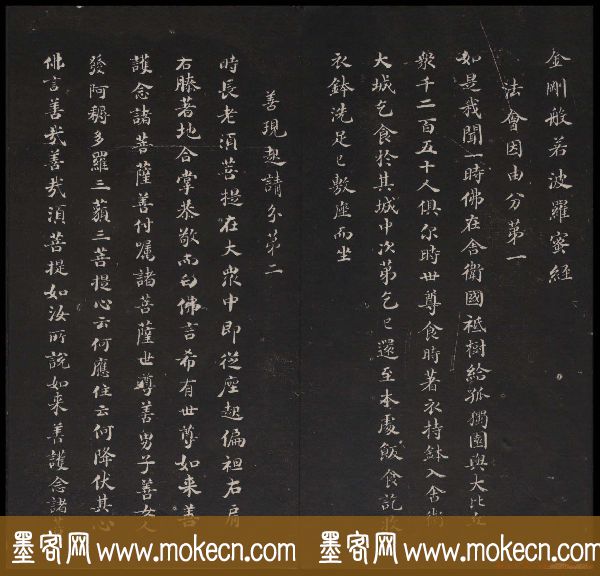 金剛般若波羅蜜經
法會因由分第一
如是我聞一時佛在舍衛國祗樹給孤獨園與大比丘
眾千二百五十人俱尒時世尊食時著衣持鉢入舍衛
大城乞食於其城中次第乞已還至本處飯食訖收
衣鉢洗足已敷座而坐
善現起請分第二
時長老湏菩提在大眾中即從座起偏袒右肩
右膝著地合掌恭敬而白佛言希有世尊如来善
護念諸菩薩善付囑諸菩薩世尊善男子善女人
發阿耨多羅三藐三菩提心云何應住云何降伏其心
佛言善哉善哉湏菩提如汝所說如来善護念諸菩
墨客网 www.mokecn.com 墨客网 www.mokecn.com